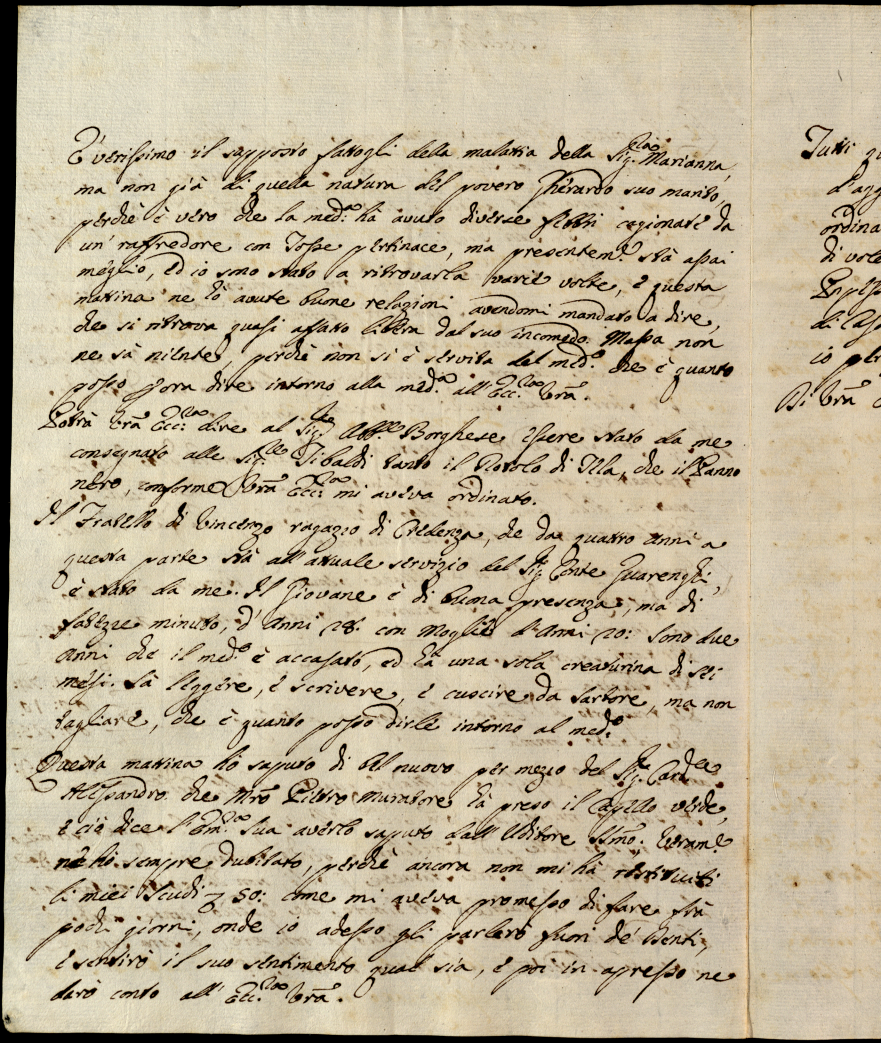 È verissimo il supposto fattogli della malattia della Sig.ra Marianna,
ma non già di quella natura del povero Gherardo suo marito,
perchè è vero che la med.a hà avuto diverse febbri cagionate da
un' raffredore con Tosse pertinace, mà presentem.e stà assai
meglio, ed io sono stato a ritrovarla varie volte, e questa
mattina ne hò avute buone relazioni avendomi mandato a dire,
che si ritrova quasi affatto libera dal suo incomodo. Massa non
ne sà niente, perchè non si è servita del med.o che è quanto
posso p ora dire intorno alla med.a all' Ecc.za Vrã.
Potrà Vrã Ecc.za dire al Sig.re Abb.e Borghese essere stato da me
consegnato alle Sig.re Tibaldi tanto il Rotolo di Tela, che il Panno
nero, conforme Vrã Ecc.za mi aveva ordinato.
Il Fratello di Vincenzo ragazzo di Credenza, che da quattro anni a
questa parte stà all' attuale servizio del Sig.re Conte Guarenghi,
è stato da me. Il Giovane è di buona presenza, ma di
fatezze minuto, d' Anni 28. con Moglie d' Anni 20: sono due
Anni che il med.o è accasato, ed hà una sola creaturina di sei
mesi. Sà leggere, e scrivere, e cuocire da Sartore, ma non
tagliare, che è quanto posso dirle intorno al med.o
Questa mattina hò saputo di bel nuovo per mezzo del Sig.re Card.le
Alessandro che Mrõ Pietro Muratore hà preso il Capello verde,
e ciò dice l' Em.za Sua averlo saputo dall' Uditore SSmo: Veram.e
ne hò sempre dubitato, perchè ancora non mi hà restituiti
li miei scudi 50: come mi aveva promesso di fare frà
pochi giorni, onde io adesso gli parlerò fuori de' denti,
e sentirò il suo sentimento qual sia, e poi in apresso ne
darò conto all' Ecc.za Vrã.
Tutti
ordina
di
io
Di Vrã